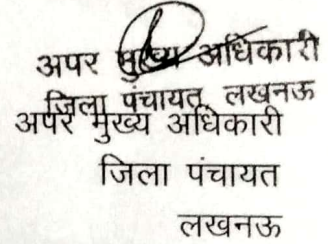 अपर मुख्य अधिकारी
जिला पंचायत, लखनऊ
अपर मुख्य अधिकारी
जिला पंचायत
लखनऊ